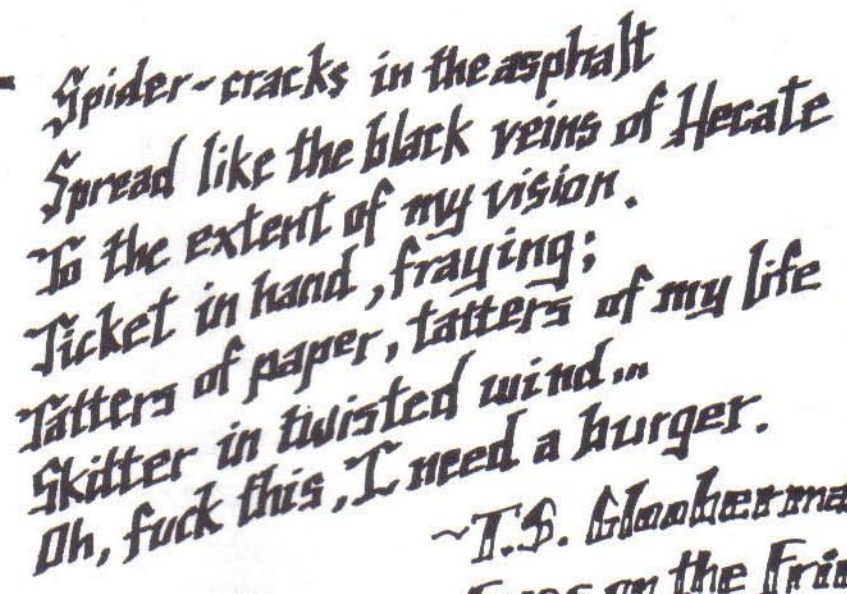 Spider-cracks in the asphalt
Spread like the black veins of Hecate
To the extent of my vision.
Ticket in hand, fraying;
Tatters of paper, tatters of my life
Skitter in twisted wind...
Oh, fuck this, I need a burger.
~T.S. Glooberma
on the Frin